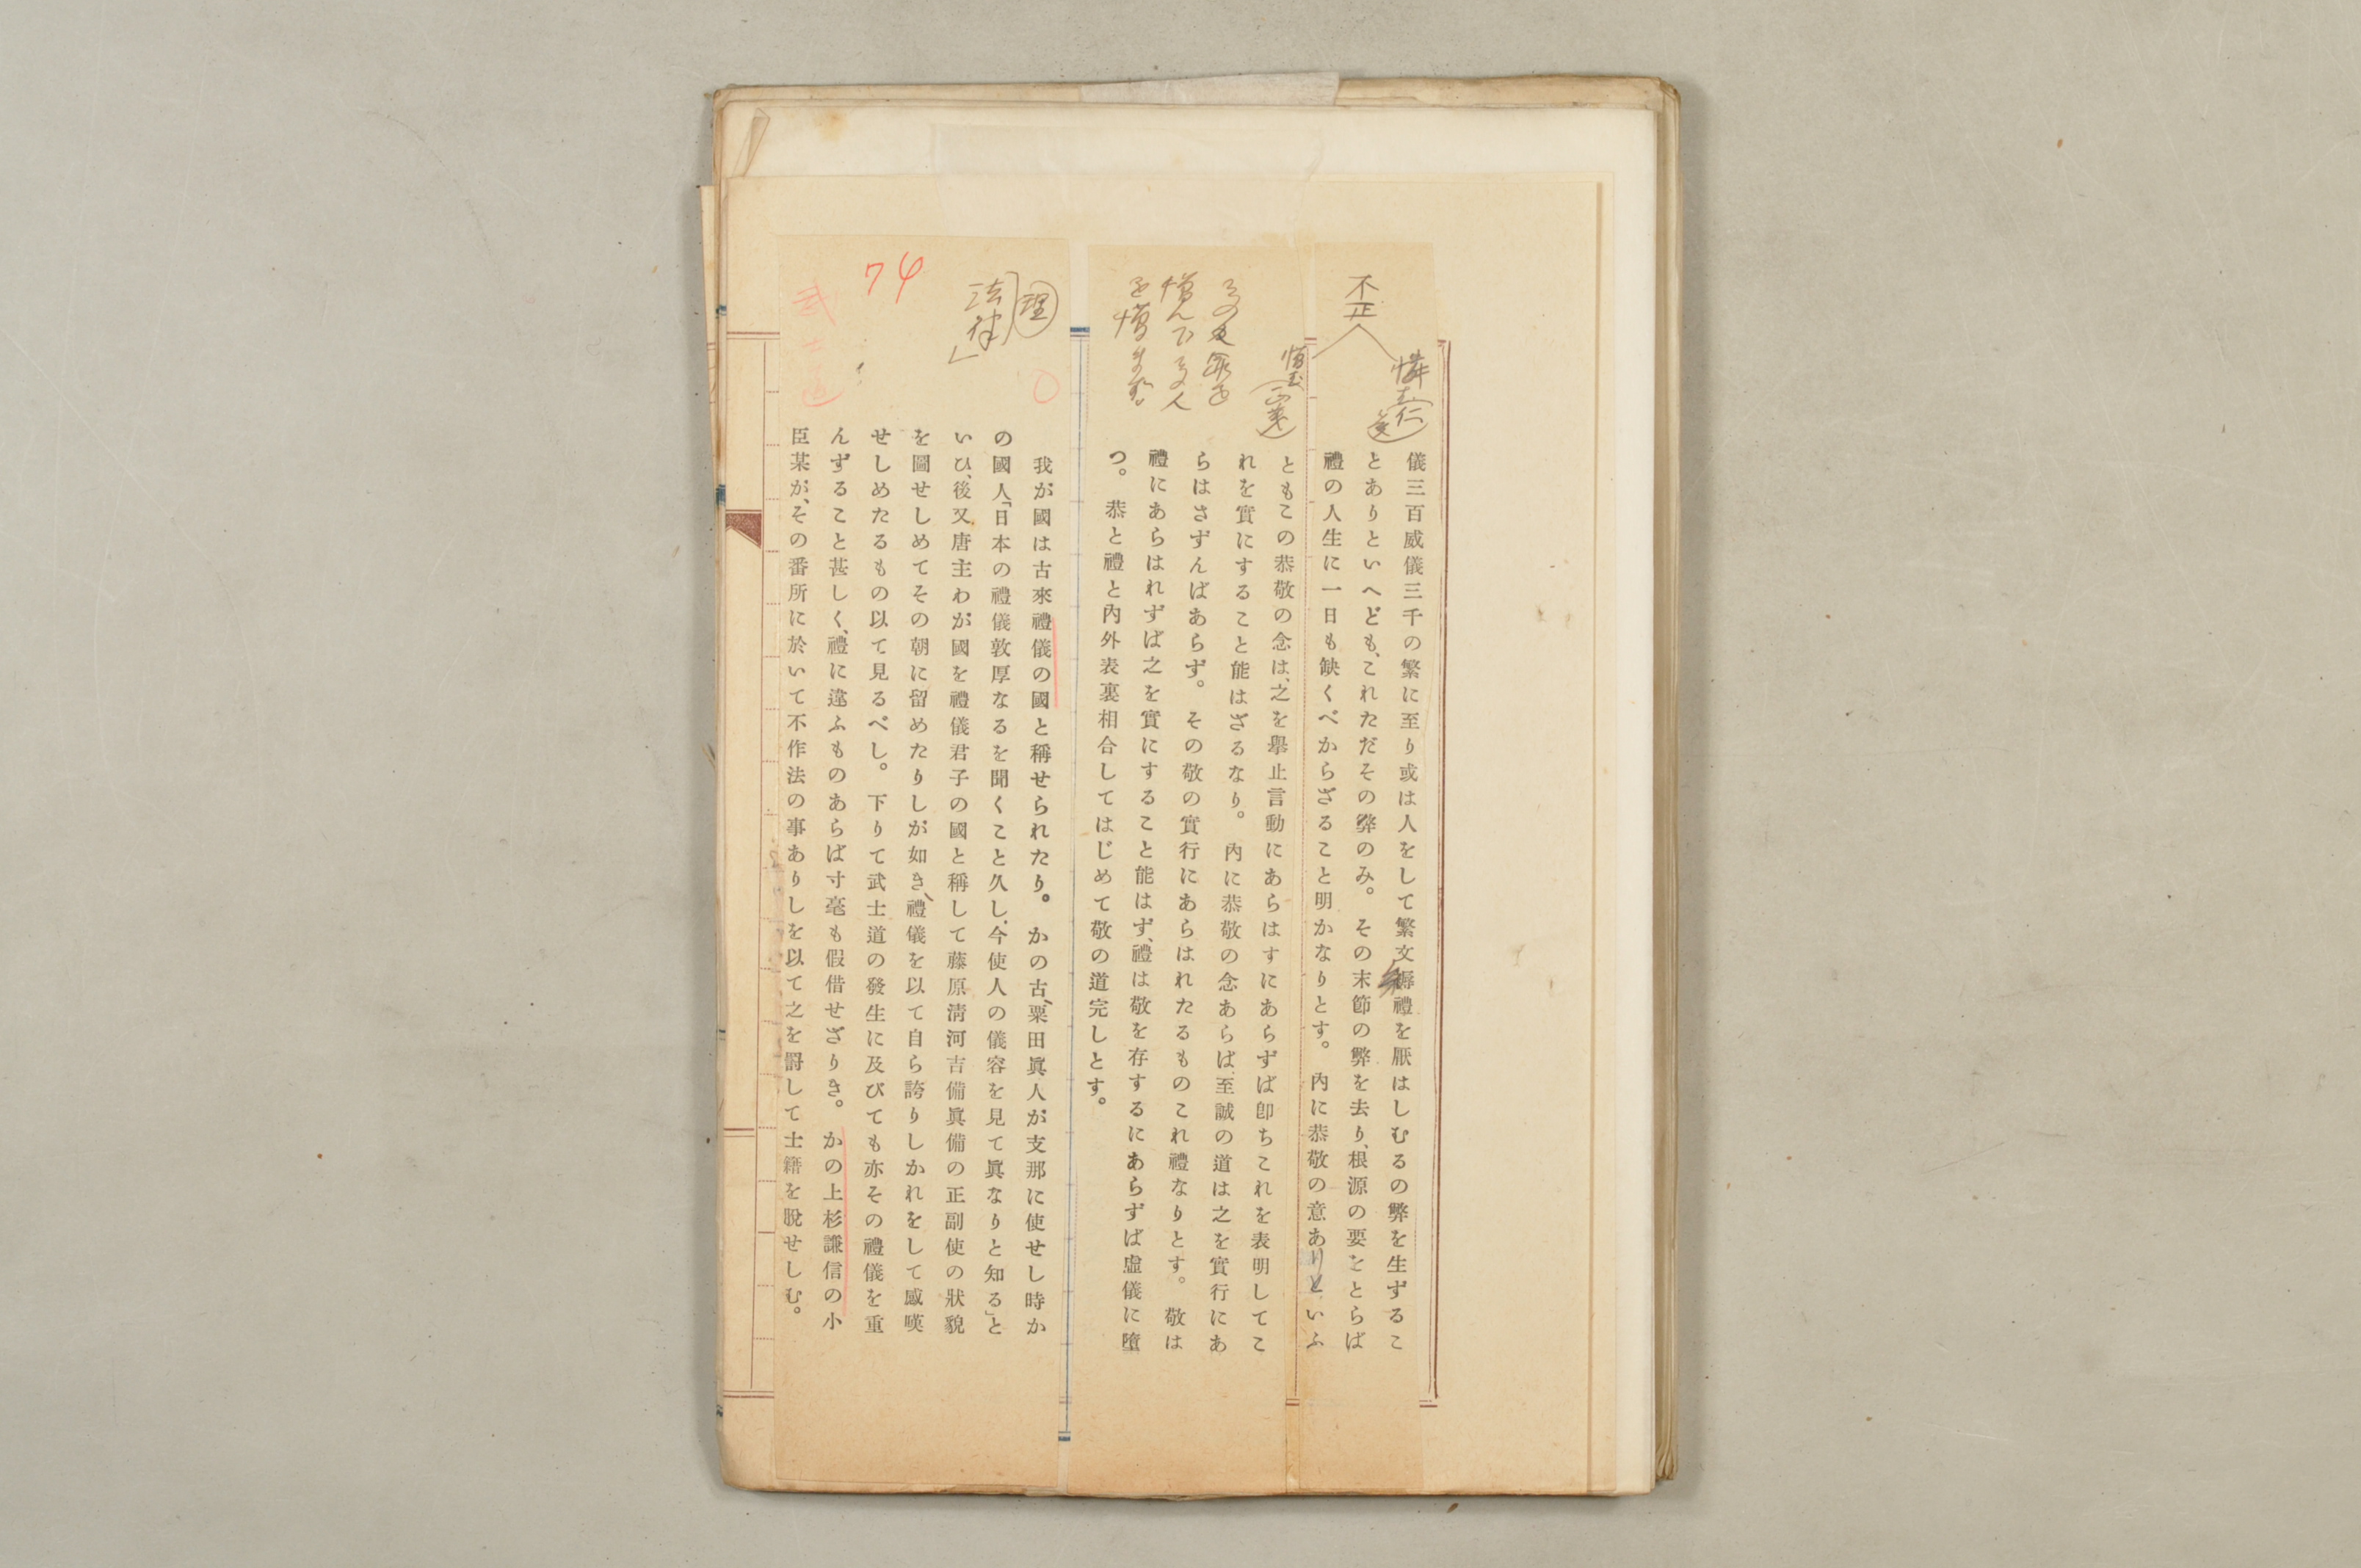 儀三百威儀三千の繁に至り或は人をして繁文縟禮を厭はしむるの弊を生ずるこ
とありといへども、これただその弊のみ。その末節の弊を去り、根源の要をとらば
禮の人生に一日も缺くべからざること明かなりとす。內に恭敬の意ありといふ
ともこの恭敬の念は、之を擧止言動にあらはすにあらずば卽ちこれを表明してこ
れを實にすること能はざるなり。內に恭敬の念あらば、至誠の道は之を實行にあ
らはさずんばあらず。その敬の實行にあらはれたるものこれ禮なりとす。敬は
禮にあらはれずば之を實にすること能はず、禮は敬を存するにあらずば虛儀に墮
つ。恭と禮と內外表裏相合してはじめて敬の道完しとす。
我が國は古來禮儀の國と稱せられたり。かの古、粟田眞人が支那に使せし時か
の國人「日本の禮儀敦厚なるを聞くこと久し、今使人の儀容を見て眞なりと知る」と
いひ、後又唐主わが國を禮儀君子の國と稱して藤原淸河吉備眞備の正副使の狀貌
を圖せしめてその朝に留めたりしが如き、禮儀を以て自ら誇りしかれをして感嘆
せしめたるもの以て見るべし。下りて武士道の發生に及びても亦その禮儀を重
んずること甚しく、禮に違ふものあらば寸毫も假借せざりき。かの上杉謙信の小
臣某が、その番所に於いて不作法の事ありしを以て之を罸して士籍を脫せしむ。
不正
理
法律
74
武士道